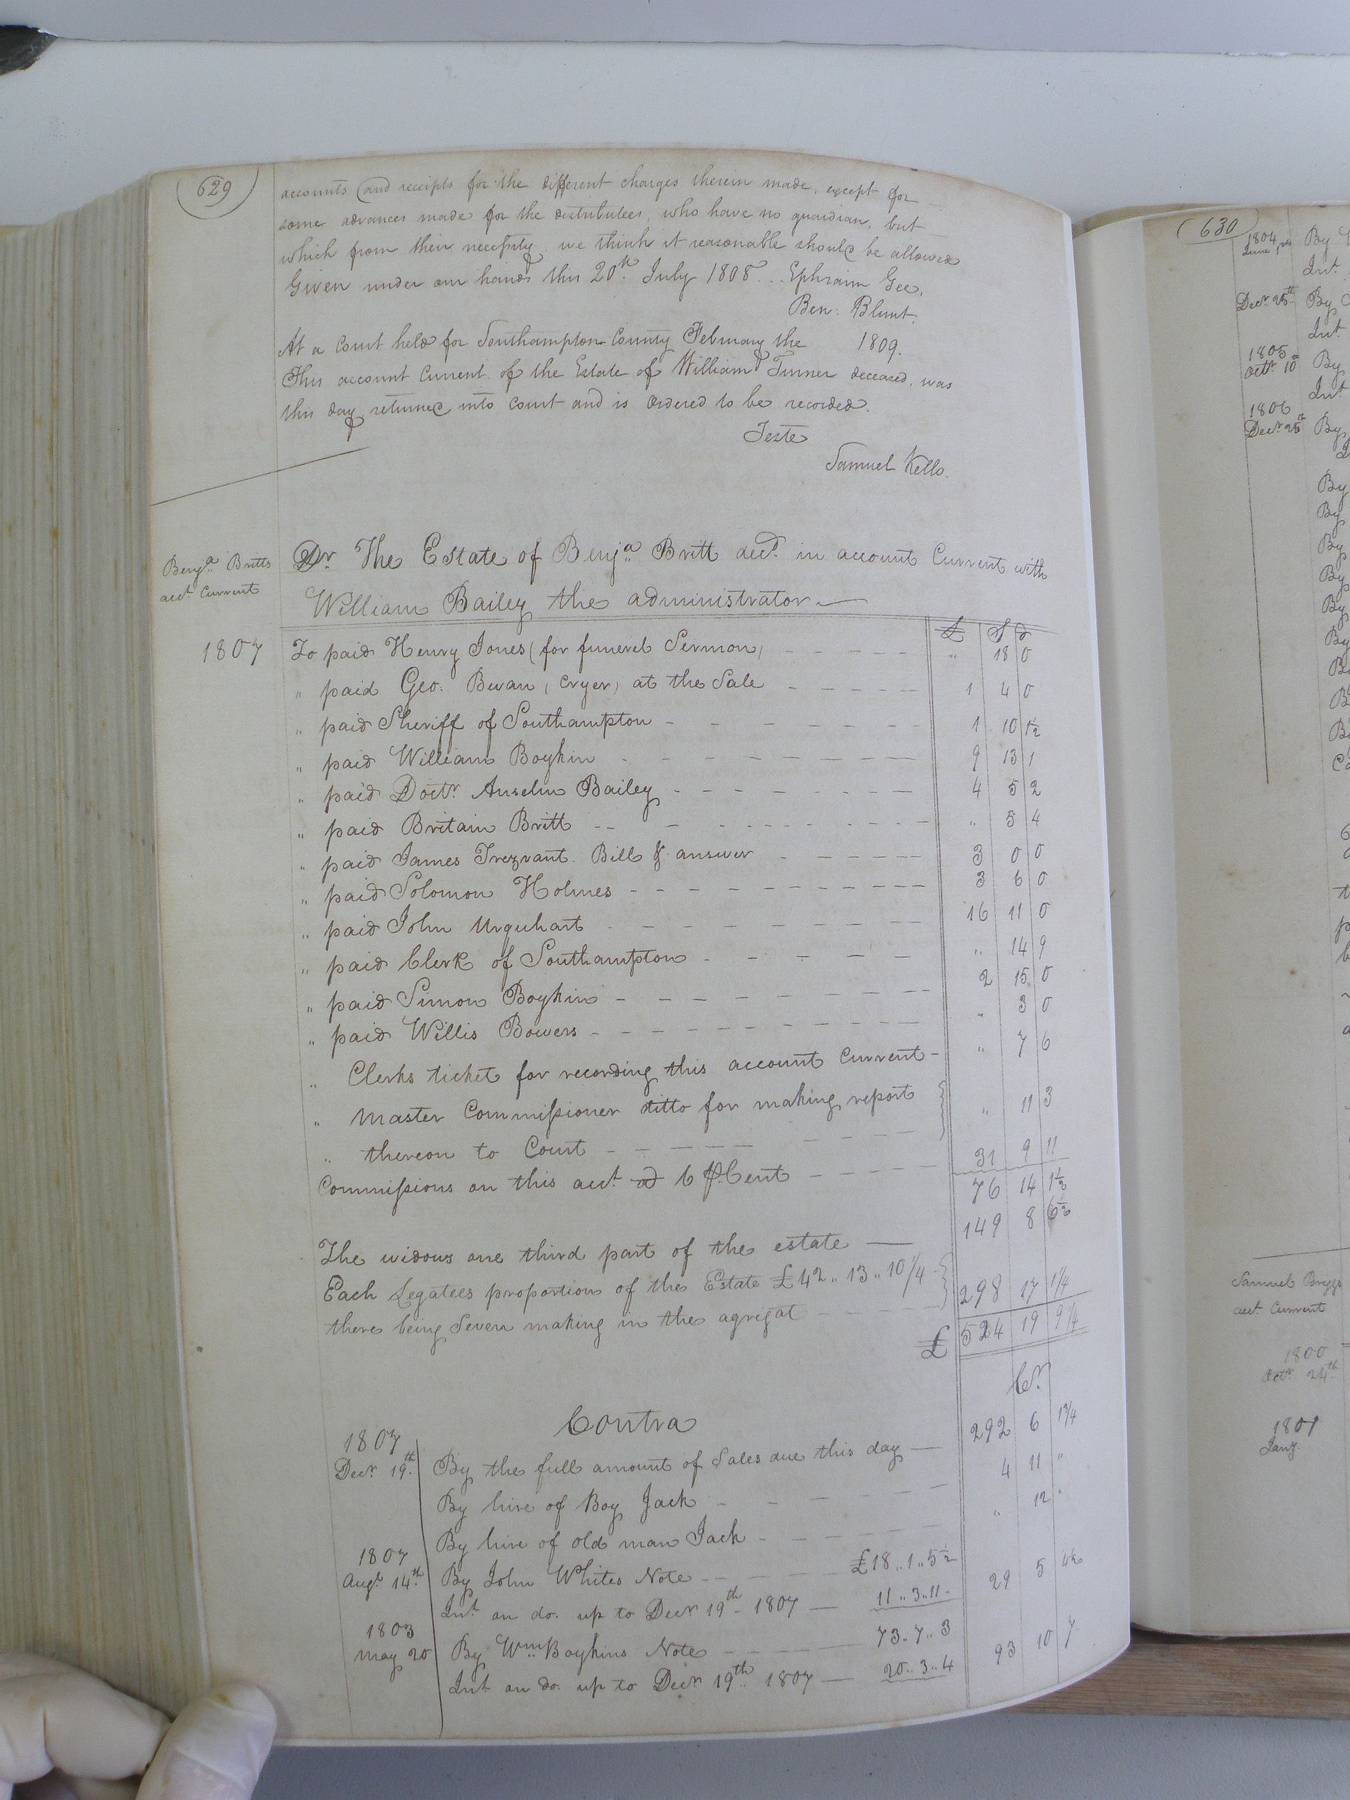 629
accounts and receipts for the different charges therein made, except for
some advances made for the distributees, who have no guardian, but
which from their necessity, we think it reasonable should be allowed
Given under our hands this 20th July 1808... Ephraim Gee,
Ben: Blunt.
At a Court held for Southampton County February the 1809.
This account Current of the Estate of William Turner deceased, was
this day returned into Court and is Ordered to be recorded.
Teste
Samuel Kello.
Benja. Britts
acct. Current
Dr. The Estate of Benja. Britt decd. in account Current with
William Bailey the administrator
£ S d
1807 To paid Henry Jones (for funeral Sermon) " 18 0
" paid Geo. Bevan (Cryer) at the Sale 1 4 0
" paid Sheriff of Southampton 1 10 1½
" paid William Boykin 9 13 1
" paid Doctr. Anselm Bailey 4 5 2
" paid Britain Britt " 5 4
" paid James Trezvant Bill & answer 3 0 0
" paid Solomon Holmes 3 6 0
" paid John Urquhart 16 11 0
" paid Clerk of Southampton " 14 9
" paid Simon Boykin 2 15 0
" paid Willis Bowers " 3 0
" Clerks ticket for recording this account Current " 7 6
" Master Commissioner ditto for making report
" thereon to Court " 11 3
Commissions on this acct. at 6 pr. Cent 31 9 11
76 14 1½
The widows one third part of the estate 149 8 6½
Each Legatees proportion of the Estate £42.. 13.. 10 1/4
there being Seven making in the agrigat 298 17 1/4
£ 524 19 9 1/4
Contra Cr.
1807
Decr. 19th. By the full amount of Sales due this day 292 6 1 3/4
By hire of Boy Jack 4 11 "
By hire of old man Jack " 12 "
1807
Augt. 14th. By John Whites Note £18.. 1.. 5½
Int. on do. up to Decr 19th. 1807 11.. 3.. 11 29 5 4½
1803
May 20 By Wm. Boykins Note 73.. 7.. 3
Int on do. up to Decr 19th. 1807 20.. 3.. 4 93 10 7
630
1804
June 1st By
Int.
Decr. 25th By
Int.
1805
Octr. 10 By
Int
1806
Decr. 25th By
By
By
By
By
By
By
Samuel Briggs
acct Current
1800
Octr. 24th
1801
Jany.